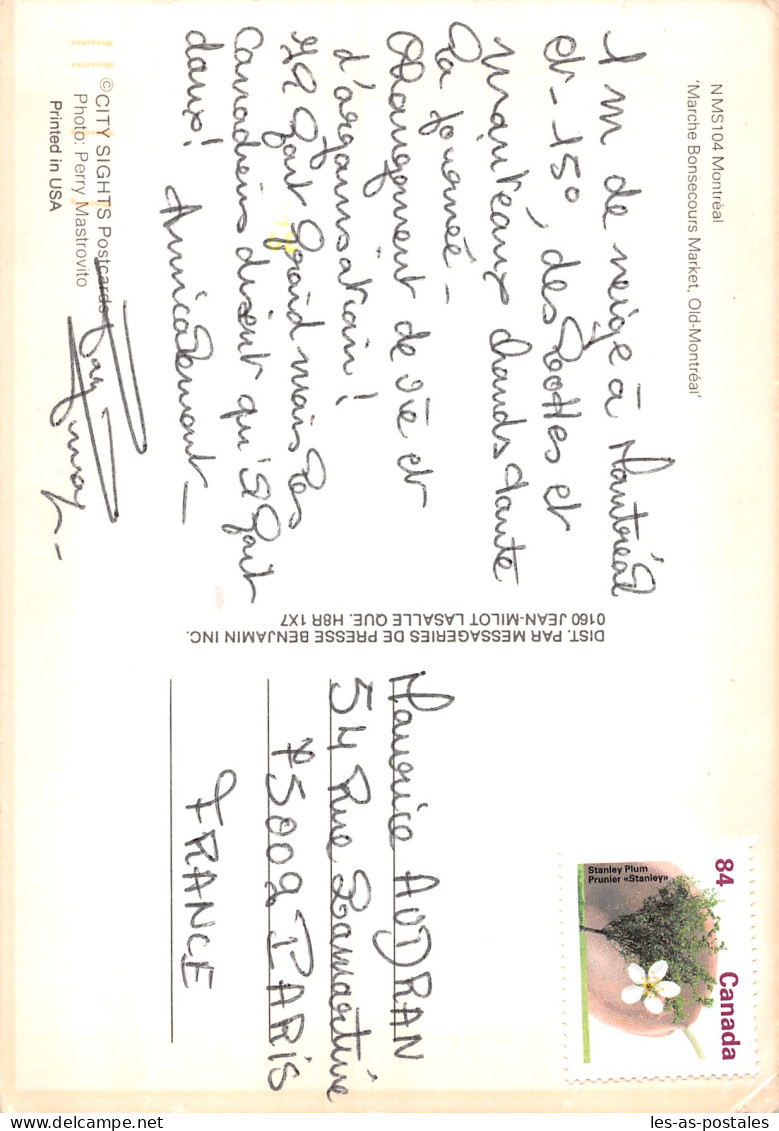 N MS104 Montréal
'Marche Bonsecours Market, Old-Montréal'
1 m de neige à Montréal
et -15°, des bottes et
manteaux chauds toute
la journée -
Changement de vie et
d'organisation !
Il fait froid mais les
Canadiens disent qu'il fait
doux !
Amicalement -
©CITY SIGHTS Postcards
Photo: Perry Mastrovito
Printed in USA
DIST. PAR MESSAGERIES DE PRESSE BENJAMIN INC.
0160 JEAN-MILOT LASALLE QUE. H8R 1X7
84
Stanley Plum
Prunier «Stanley»
Canada
Maurice AUDRAN
54 Rue Lamartine
75009 PARIS
FRANCE
les-as-postales